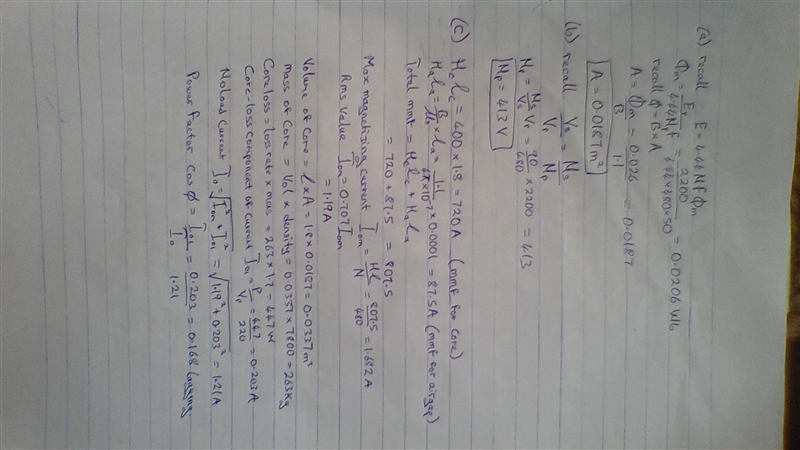 (a) recall E = 4.44 N f Φm
Φm = E₁ / 4.44 N₁ f = 2200 / 4.44×480×50 = 0.0206 Wb
recall φ = B × A
A = Φm / B = 0.026 / 1.1 = 0.0187
A = 0.0187 m²
(b) recall V₂ / V₁ = N₂ / N₁
Np = N₂ / V₂ V₁ = 90 / 480 × 2200 = 413
Np = 413 V
(c) Hc lc = 400 × 1.8 = 720 A (mmf for core)
Ha la = B / μ₀ × la = 1.1 / 4π×10⁻⁷ × 0.0001 = 87.5 A (mmf for airgap)
Total mmf = Hc lc + Ha la
= 720 + 87.5 = 807.5
Max magnetizing current Iom = Hl / N = 807.5 / 480 = 1.682 A
Rms value Iom = 0.707 Iom
= 1.19 A
Volume of core = l × A = 1.8 × 0.0187 = 0.0337 m³
mass of core = Vol × density = 0.0337 × 7800 = 263 kg
Core loss = loss rate × mass = 263 × 1.7 = 447 W
Core-loss component of current Io1 = P / V₁ = 447 / 220 = 0.203 A
No Load Current Io = √Iom² + Io1² = √1.19² + 0.203² = 1.21 A
Power factor Cos φ = Io1 / Io = 0.203 / 1.21 = 0.168 lagging